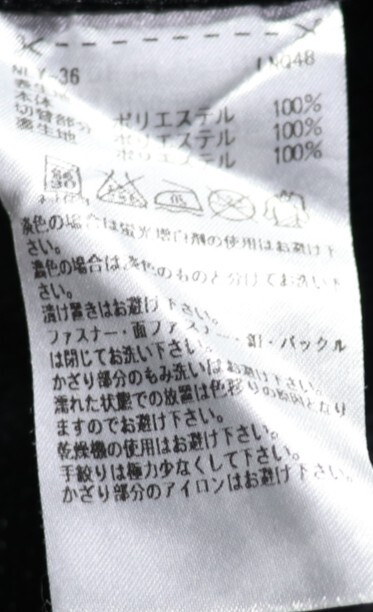 NLY-36 LNQ48
表生地
本体 ポリエステル 100%
切替部分 ポリエステル 100%
裏生地 ポリエステル 100%
淡色の場合は蛍光増白剤の使用はお避け下
さい。
濃色の場合は淡色のものと分けてお洗い下
さい。
漬け置きはお避け下さい。
ファスナー・面ファスナー・釦・バックル
は閉じてお洗い下さい。
かざり部分のもみ洗いはお避け下さい。
濡れた状態での放置は色移りの原因となり
ますのでお避け下さい。
乾燥機の使用はお避け下さい。
手絞りは極力少なくして下さい。
かざり部分のアイロンはお避け下さい。